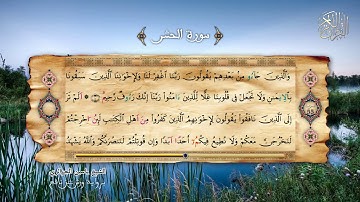 سورة الحشر
وَٱلَّذِينَ جَآءُو مِنۢ بَعْدِهِمْ يَقُولُونَ رَبَّنَا ٱغْفِرْ لَنَا وَلِإِخْوَٰنِنَا ٱلَّذِينَ سَبَقُونَا
بِٱلْإِيمَٰنِ وَلَا تَجْعَلْ فِى قُلُوبِنَا غِلًّا لِّلَّذِينَ ءَامَنُوا۟ رَبَّنَآ إِنَّكَ رَءُوفٌ رَّحِيمٌ ۝ أَلَمْ تَرَ
إِلَى ٱلَّذِينَ نَافَقُوا۟ يَقُولُونَ لِإِخْوَٰنِهِمُ ٱلَّذِينَ كَفَرُوا۟ مِنْ أَهْلِ ٱلْكِتَٰبِ لَئِنْ أُخْرِجْتُمْ
لَنَخْرُجَنَّ مَعَكُمْ وَلَا نُطِيعُ فِيكُمْ أَحَدًا أَبَدًا وَإِن قُوتِلْتُمْ لَنَنصُرَنَّكُمْ وَٱللَّهُ يَشْهَدُ